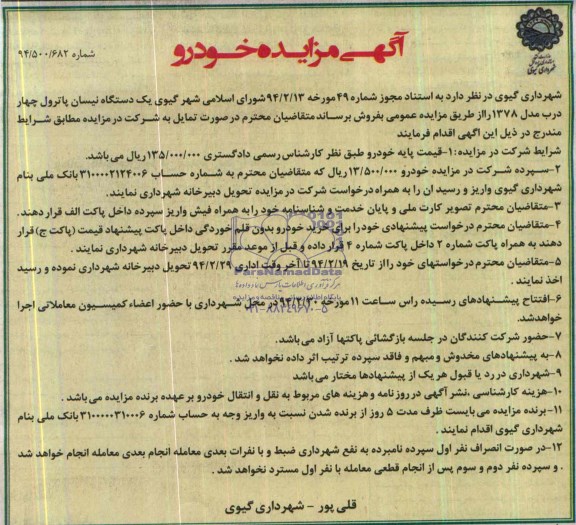 آگهی مزایده خودرو
شماره ۹۴/۵۰۰/۶۸۲
شهرداری گیوی در نظر دارد به استناد مجوز شماره ۴۹مورخه ۹۴/۲/۱۳شورای اسلامی شهر گیوی یک دستگاه نیسان پاترول چهار
درب مدل ۱۳۷۸رااز طریق مزایده عمومی بفروش برساند متقاضیان محترم در صورت تمایل به شرکت در مزایده مطابق شرایط
مندرج در ذیل این آگهی اقدام فرمایند
شرایط شرکت در مزایده:۱-قیمت پایه خودرو طبق نظر کارشناس رسمی دادگستری ۱۳۵/۰۰۰/۰۰۰ریال می باشد.
۲-سپرده شرکت در مزایده خودرو ۱۳/۵۰۰/۰۰۰ریال که متقاضیان محترم به شماره حساب ۳۱۰۰۰۰۲۱۲۴۰۰۶بانک ملی بنام
شهرداری گیوی واریز و رسید ان را به همراه درخواست شرکت در مزایده تحویل دبیرخانه شهرداری نمایند.
۳-متقاضیان محترم تصویر کارت ملی و پایان خدمت و شناسنامه خود را به همراه فیش واریز سپرده داخل پاکت الف قرار دهند.
۴-متقاضیان محترم درخواست پیشنهادی خودرا برای خرید خودرو بدون قلم خوردگی داخل پاکت پیشنهاد قیمت (پاکت ج)قرار
دهند به همراه پاکت شماره ۲ داخل پاکت شماره ۴ قرار داده و قبل از موعد مقرر تحویل دبیرخانه شهرداری نمایند .
۵-متقاضیان محترم درخواستهای خود را از تاریخ ۹۴/۲/۱۹ تا آخر وقت اداری ۹۴/۲/۲۹ تحویل دبیرخانه شهرداری نموده و رسید
اخذ نمایند .
۶-افتتاح پیشنهادهای رسیده راس ساعت ۱۱مورخه ۹۴/۲/۳۰ در محل شهرداری با حضور اعضاء کمیسیون معاملاتی اجرا
خواهدشد.
۷-حضور شرکت کنندگان در جلسه بازگشائی پاکتها آزاد می باشد.
۸-به پیشنهادهای مخدوش و مبهم و فاقد سپرده ترتیب اثر داده نخواهد شد .
۹-شهرداری در رد یا قبول هر یک از پیشنهادها مختار می باشد
۱۰-هزینه کارشناسی ،نشر آگهی در روزنامه و هزینه های مربوط به نقل و انتقال خودرو بر عهده برنده مزایده می باشد .
۱۱-برنده مزایده می بایست ظرف مدت ۵ روز از برنده شدن نسبت به واریز وجه به حساب شماره ۳۱۰۰۰۰۰۳۱۰۰۶بانک ملی بنام
شهرداری گیوی اقدام نمایند .
۱۲-در صورت انصراف نفر اول سپرده نامبرده به نفع شهرداری ضبط و با نفرات بعدی معامله انجام بعدی معامله انجام خواهد شد
. و سپرده نفر دوم و سوم پس از انجام قطعی معامله با نفر اول مسترد نخواهد شد .
قلی پور - شهرداری گیوی
ParsNamadData
۰۲۱-۸۸۳۴۹۶۷۰-۵